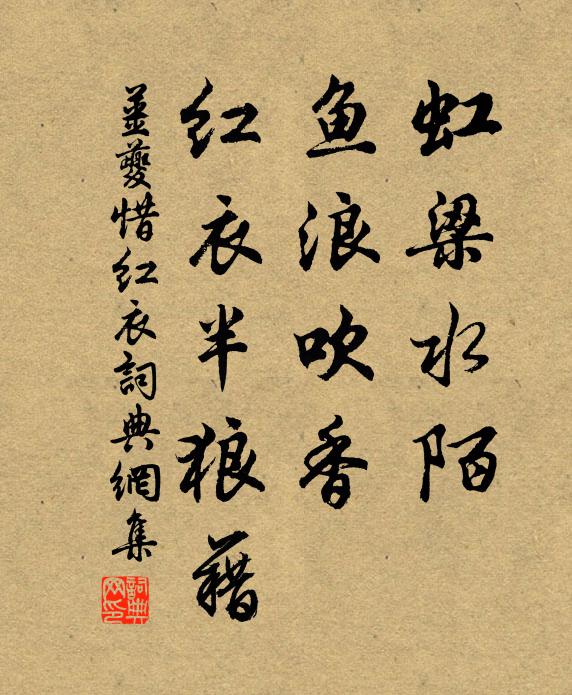 虹梁水陌
鱼浪吹香
红衣半狼藉
姜夔惜红衣詞典網集
詞典
网印